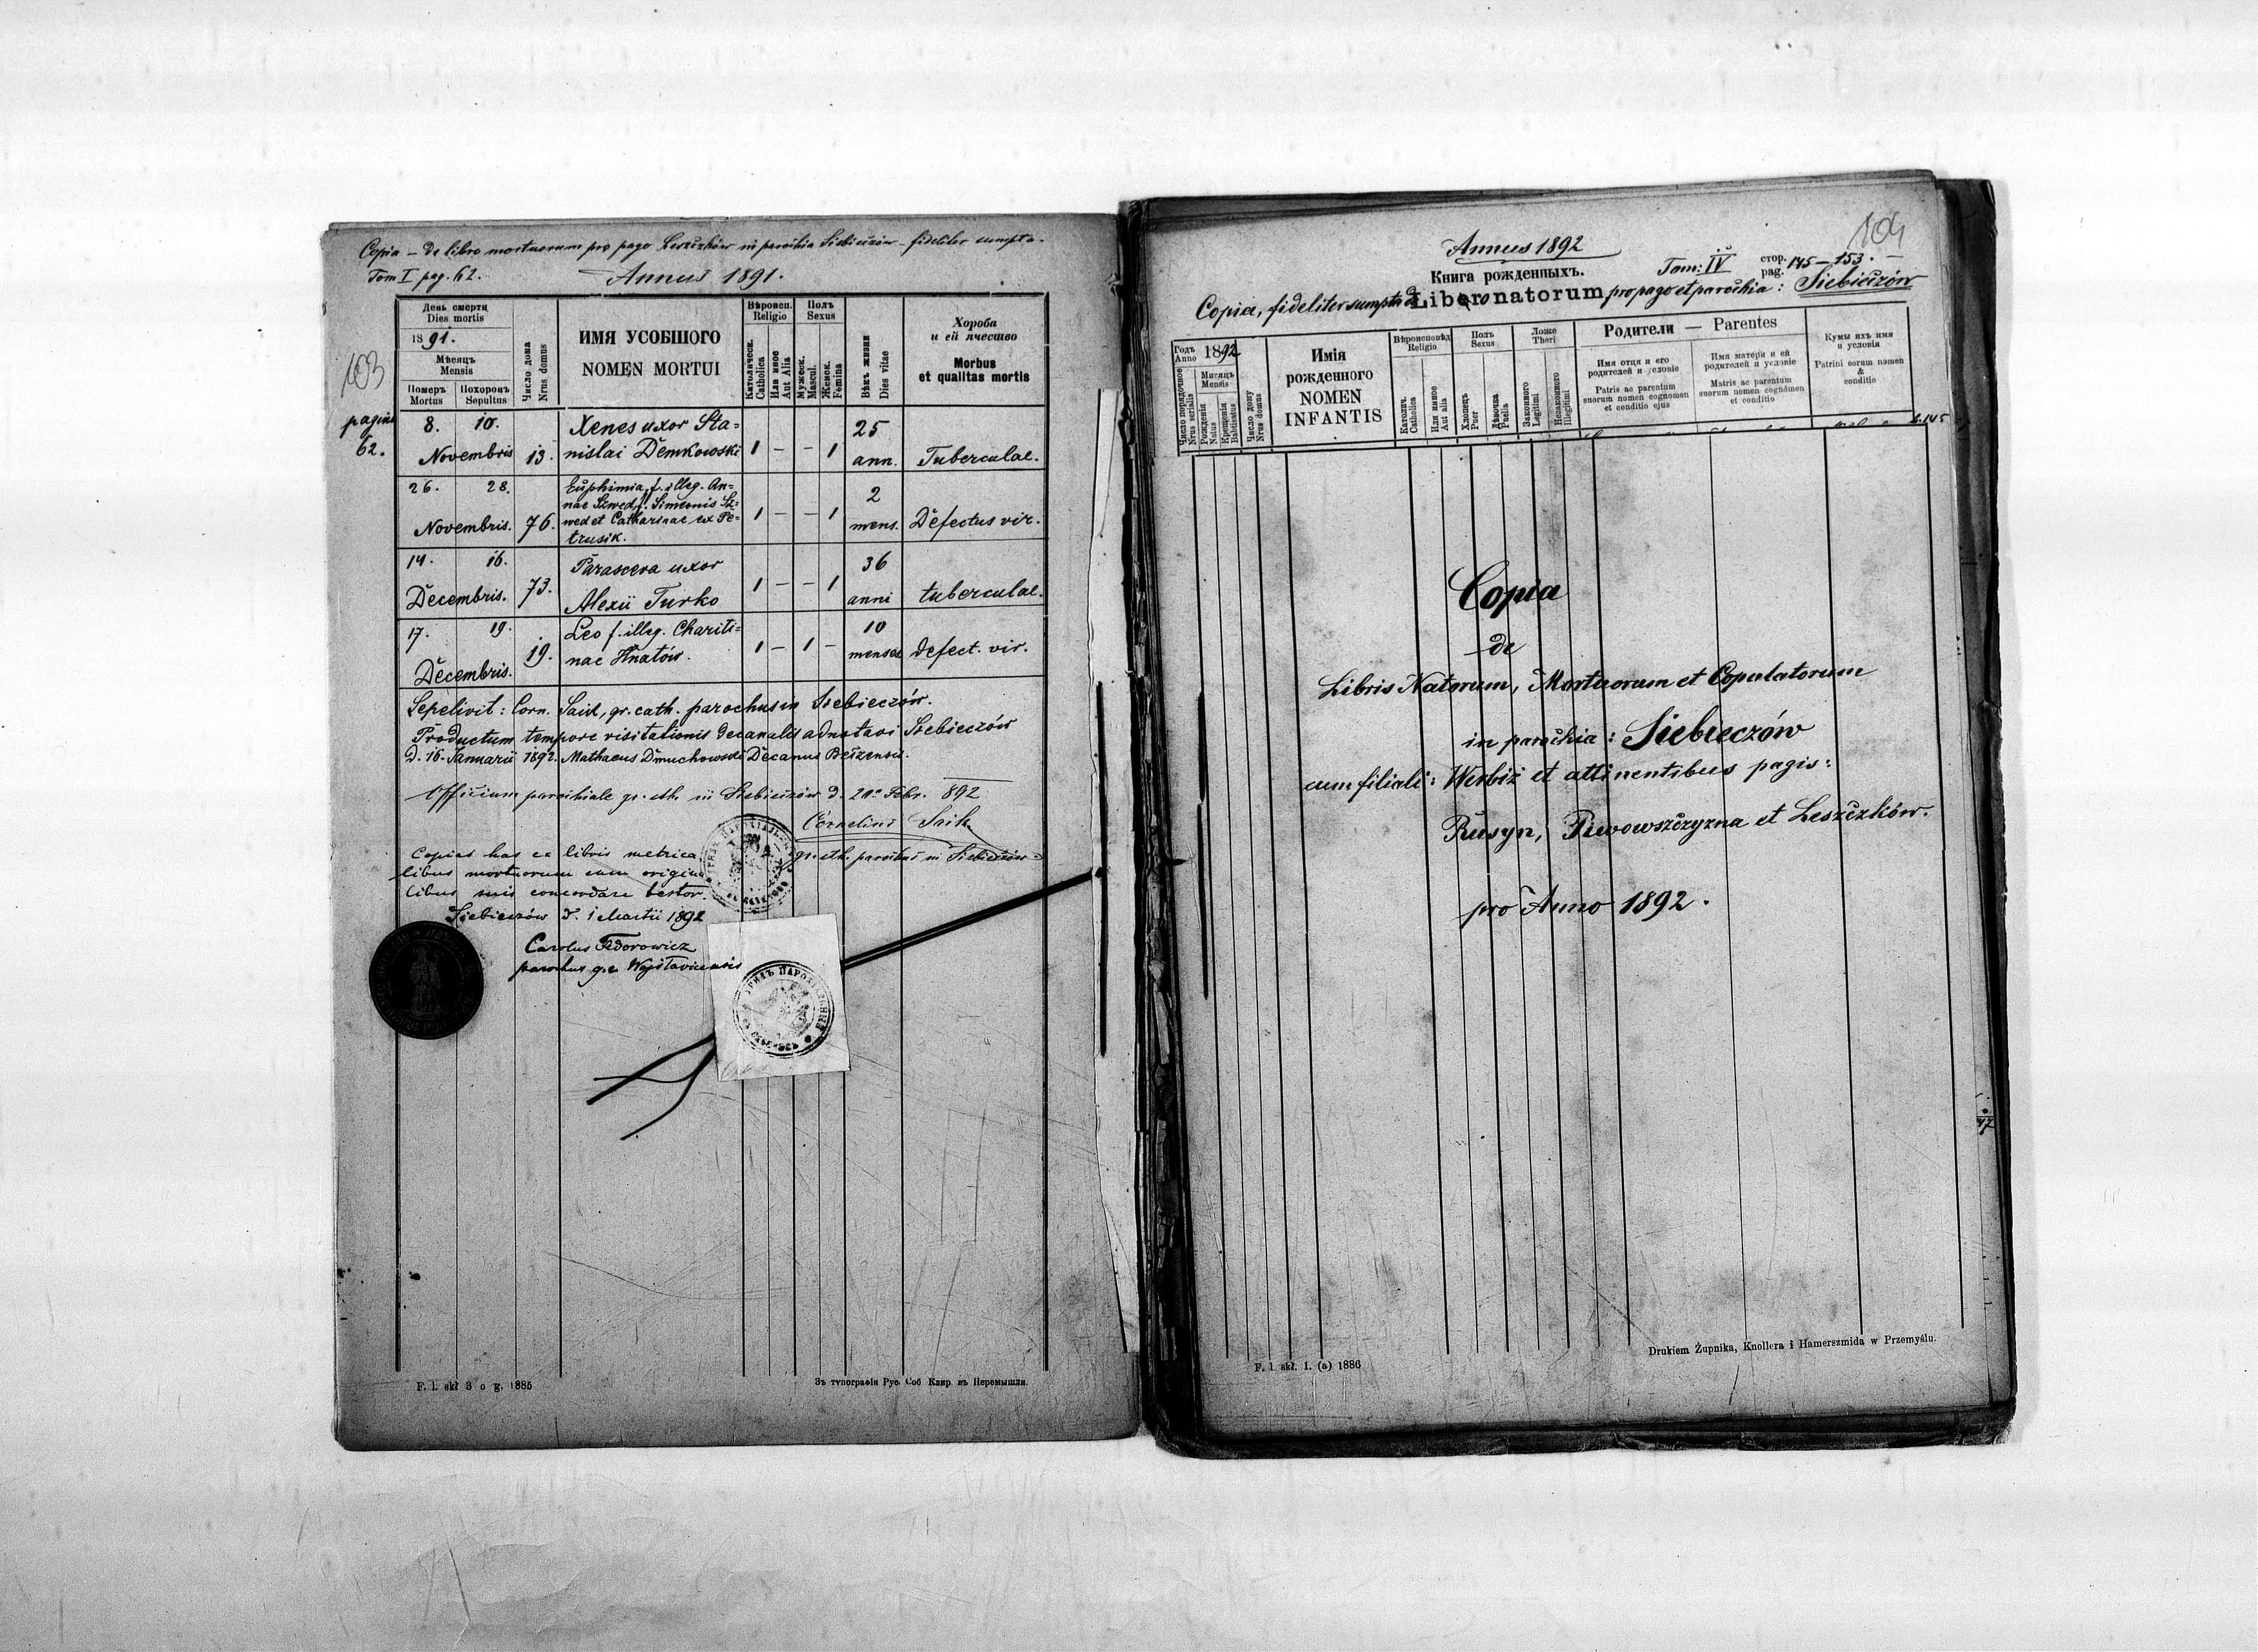 Copia – de libro mortuorum pro pago Leszczków in parochia Siebieczów – fideliter sumpta.
Tom I pag. 62.
Annus 1891.
103
День смерти
Dies mortis
1891.
Мѣсяцъ
Mensis
Померъ
Mortus
Похоронъ
Sepultus
Число дома
Nrus domus
ИМЯ УСОБШОГО
NOMEN MORTUI
Вѣроисп.
Religio
Католическ.
Catholica
Или иное
Aut Alia
Полъ
Sexus
Мужеск.
Mascul.
Женск.
Femina
Вѣкъ жизни
Dies vitae
Хороба
и ей ячество
Morbus
et qualitas mortis
pagina
62.
8. 10. Xenes uxor Sta= 25
Novembris 13. nislai Demkowski 1 – – 1 ann. Tuberculae.
26. 28. Euphimia, f. illeg. An= 2
nae Szwed, f. Simeonis Sz=
Novembris. 76. wed et Catharinae ex Pe= 1 – – 1 mens. Defectus vir.
trusik.
14. 16. Parascera uxor 36
Decembris. 73. Alexii Turko 1 – – 1 anni tuberculae.
17. 19. Leo f. illeg. Chariti= 10
Decembris. 19. nae Hnatów. 1 – 1 – menses defect. vir.
Sepelivit: Corn. Saik, gr. cath. parochus in Siebieczów.
Productum tempore visitationis decanalis adnotavi Siebieczów
D. 16. Januarii 1892. Mathaeus Dmuchowski Decanus Belzensis.
Officium parochiale gr. cth. in Siebieczów d. 20. Febr. 892
Cornelius Saik
gr. cth. parochus in Siebieczów
Copias has ex libris metrica
libus mortuorum cum origina
libus suis concordare testor.
Siebieczów d. 1 Martii 1892
Carolus Fedorowicz
parochus g.c. Wojslavicensis
F. l. skł 3 o g. 1885
Зъ типографіи Рус. Соб Клир. въ Перемышли.
104
Annus 1892
Книга рожденныхъ.
Tom: IV
стор.
pag. 145–153.
Copia, fideliter sumpta de Libro natorum pro pago et parochia: Siebieczów
Годъ
Anno 1892
Число порядочное
Nrus serialis
Мисяцъ
Mensis
Рождення
Natus
Крещення
Babtisatus
Число дому
Nrus domus
Имія
рожденного
NOMEN
INFANTIS
Вѣроисповѣд
Religio
Католич.
Catholica
Или иное
Aut alia
Полъ
Sexus
Хлопецъ
Puer
Дѣвочка
Puella
Ложе
Thori
Законного
Legitimi
Незаконного
Illegitimi
Родители — Parentes
Имя отця и его
родителей и условіе
Patris ac parentum
suorum nomen cognomen
et conditio ejus
Имя матери и ей
родителей и условіе
Matris ac parentum
suorum nomen cognómen
et conditio
Кумы ихъ имя
и условія
Patrini eorum nomen
&
conditio
Copia
de
Libris Natorum, Mortuorum et Copulatorum
in parochia: Siebieczów
cum filiali: Werbiż et attinentibus pagis:
Rusyn, Piwowszczyzna et Leszczków.
pro Anno 1892.
47
F. l. skł. 1. (a) 1886
Drukiem Żupnika, Knollera i Hamerszmida w Przemyślu.